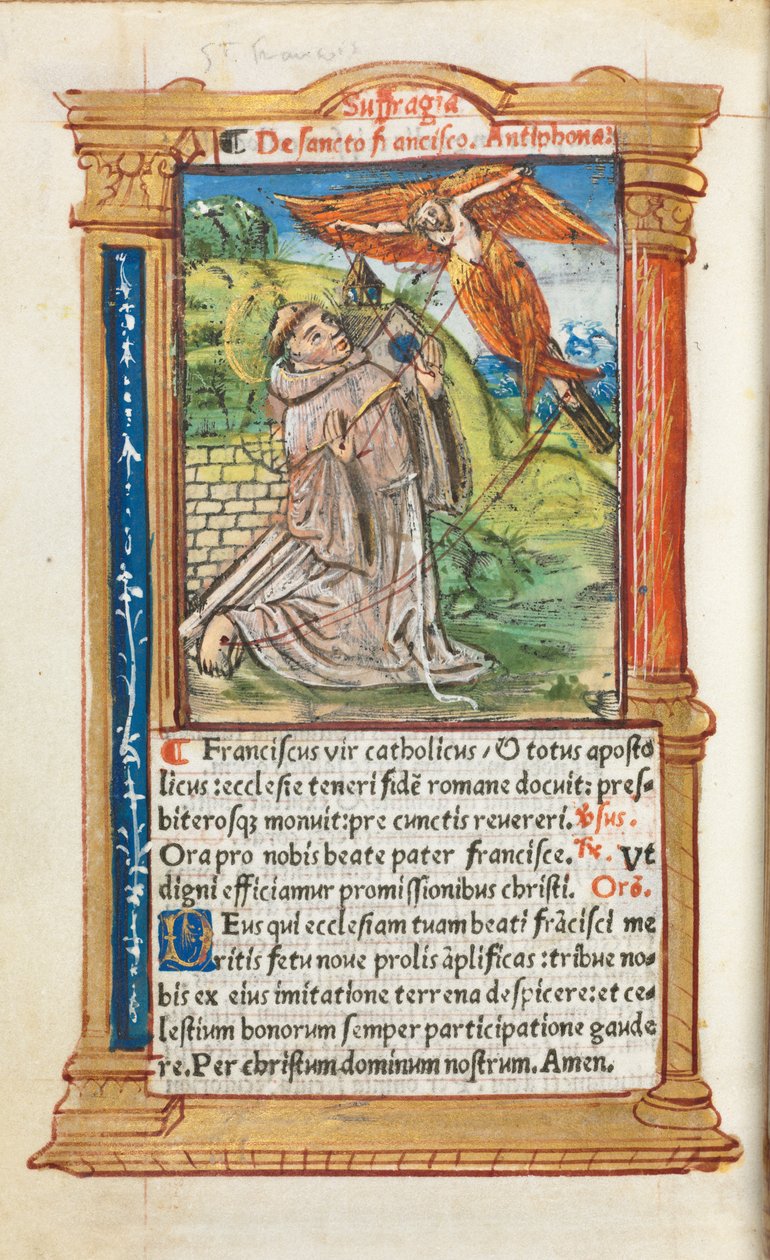 St. Francis
Suffragia
¶ De sancto francisco. Antiphona:
¶ Franciscus vir catholicus / & totus aposto
licus :ecclesie teneri fidē romane docuit: pres-
biterosqȝ monuit:pre cunctis revereri. v̄sus.
Ora pro nobis beate pater francisce. ℟. vt
digni efficiamur promissionibus christi. Orō.
DEus qui ecclesiam tuam beati frācisci me
ritis fetu noue prolis āplificas :tribue no-
bis ex eius imitatione terrena despicere:et ce-
lestium bonorum semper participatione gaude
re. Per christum dominum nostrum. Amen.